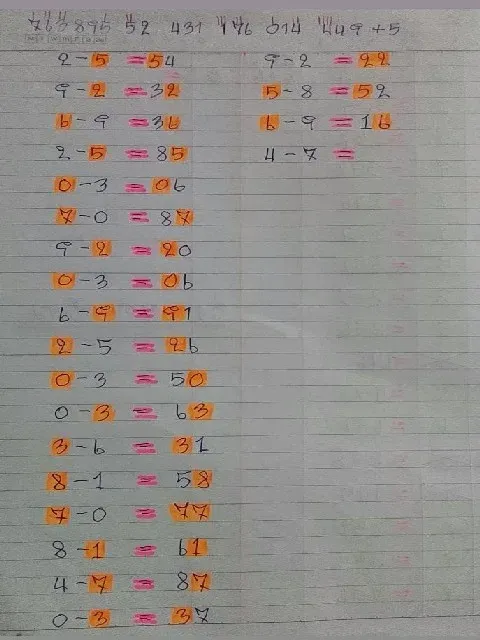 2 - 5 = 54
9 - 2 = 32
6 - 9 = 36
2 - 5 = 85
0 - 3 = 06
7 - 0 = 87
9 - 2 = 20
0 - 3 = 06
6 - 9 = 91
2 - 5 = 26
0 - 3 = 50
0 - 3 = 63
3 - 6 = 31
8 - 1 = 58
7 - 0 = 77
8 - 1 = 61
4 - 7 = 87
0 - 3 = 37
9 - 2 = 22
5 - 8 = 52
6 - 9 = 16
4 - 7 =